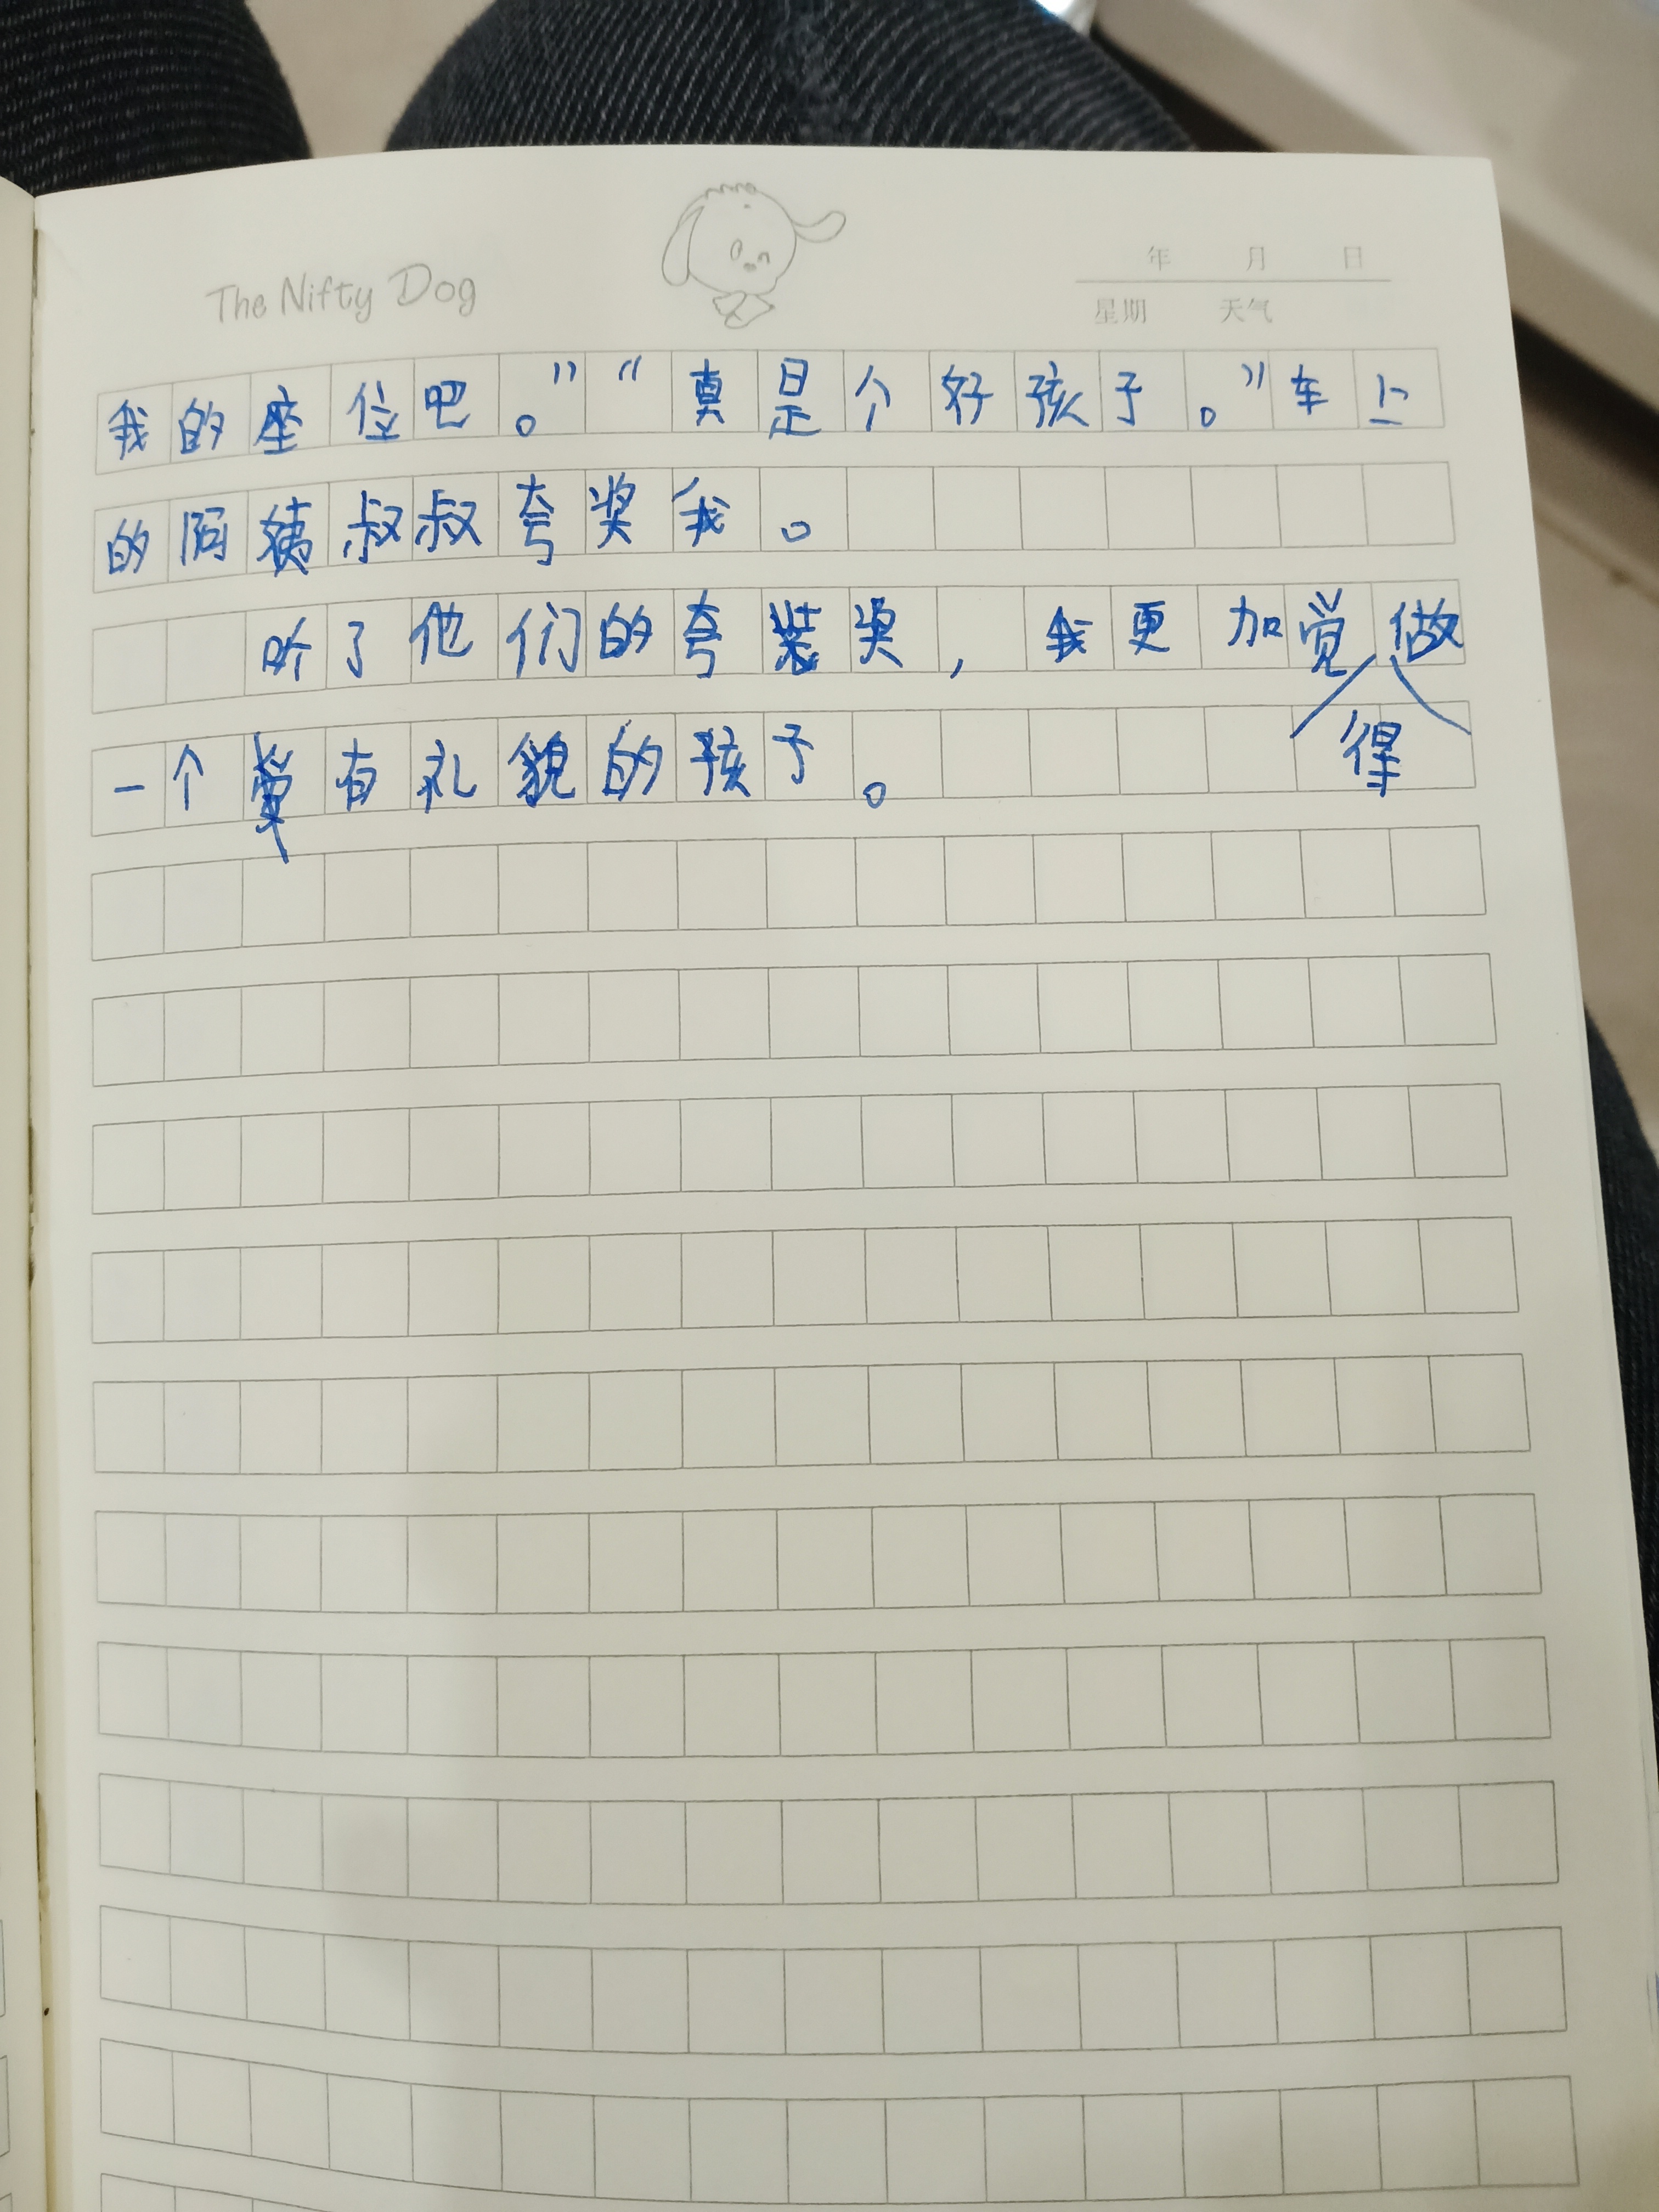 The Nifty Dog
年 月 日
星期 天气
我的座位吧。”“真是个好孩子。”车上
的阿姨叔叔夸奖我。
听了他们的夸奖，我更加觉得做
一个有礼貌的孩子。